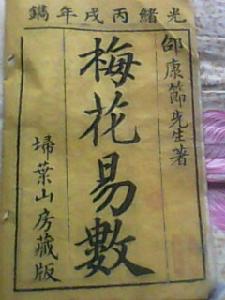 光緒丙戌年鐫
邵康節先生著
梅花易數
埽葉山房藏版